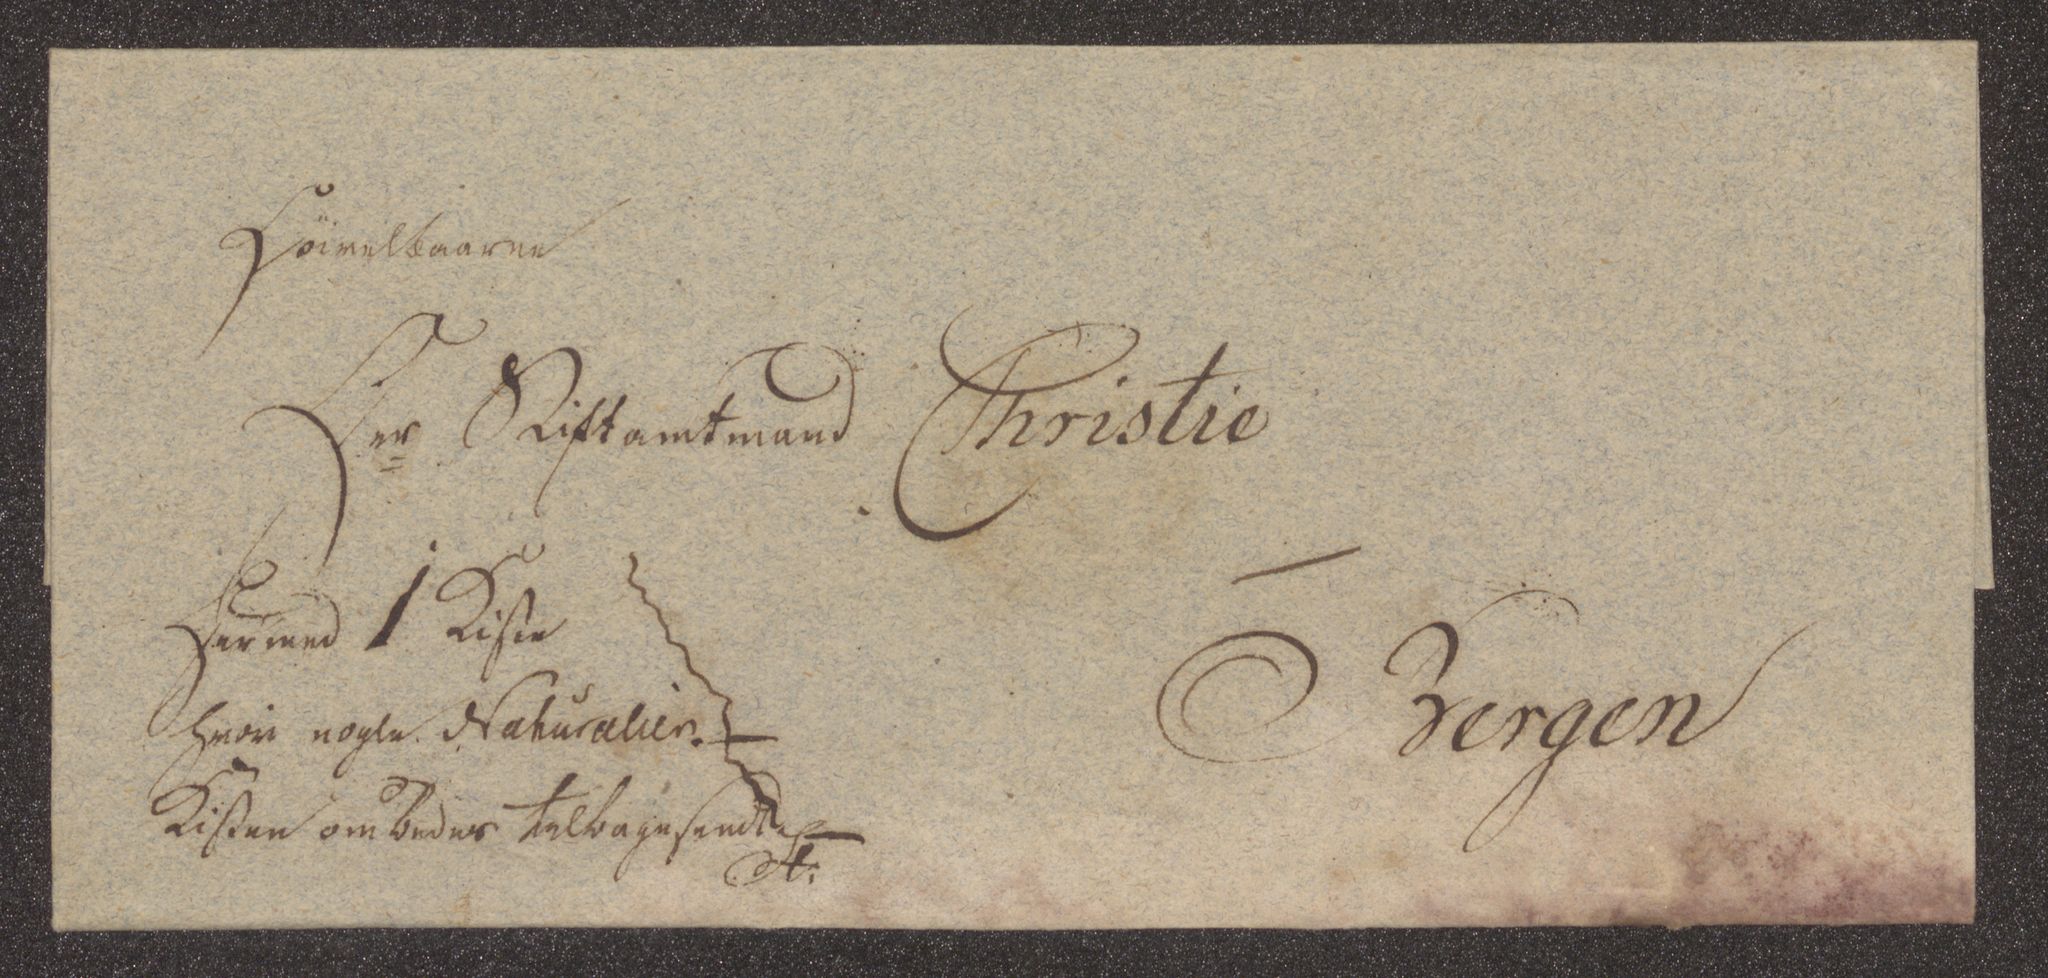 Höivelbaarne
Herr Stiftamtmand Christie
Bergen
Hermed 1 Kiste
hvori nogle Naturalier.
Kisten ombedes tilbagesendt